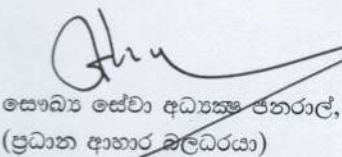 සෞඛ්‍ය සේවා අධ්‍යක්ෂ ජනරාල්,
(ප්‍රධාන ආහාර බලධරයා)